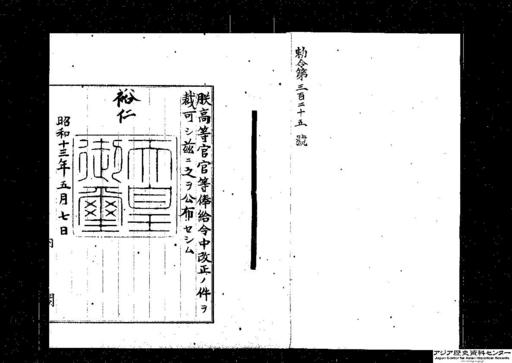 勅令第三百二十五號
朕高等官官等俸給令中改正ノ件ヲ
裁可シ茲ニ之ヲ公布セシム
裕仁
天皇
御璽
昭和十三年五月七日
アジア歴史資料センター
Japan Center for Asian Historical Records